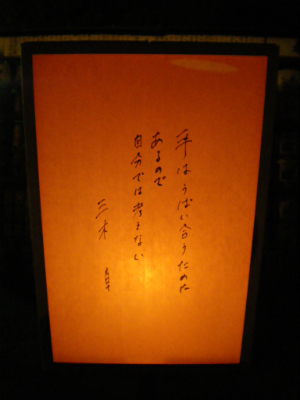 手はうばい合うために
あるので
自分では考えない
三木